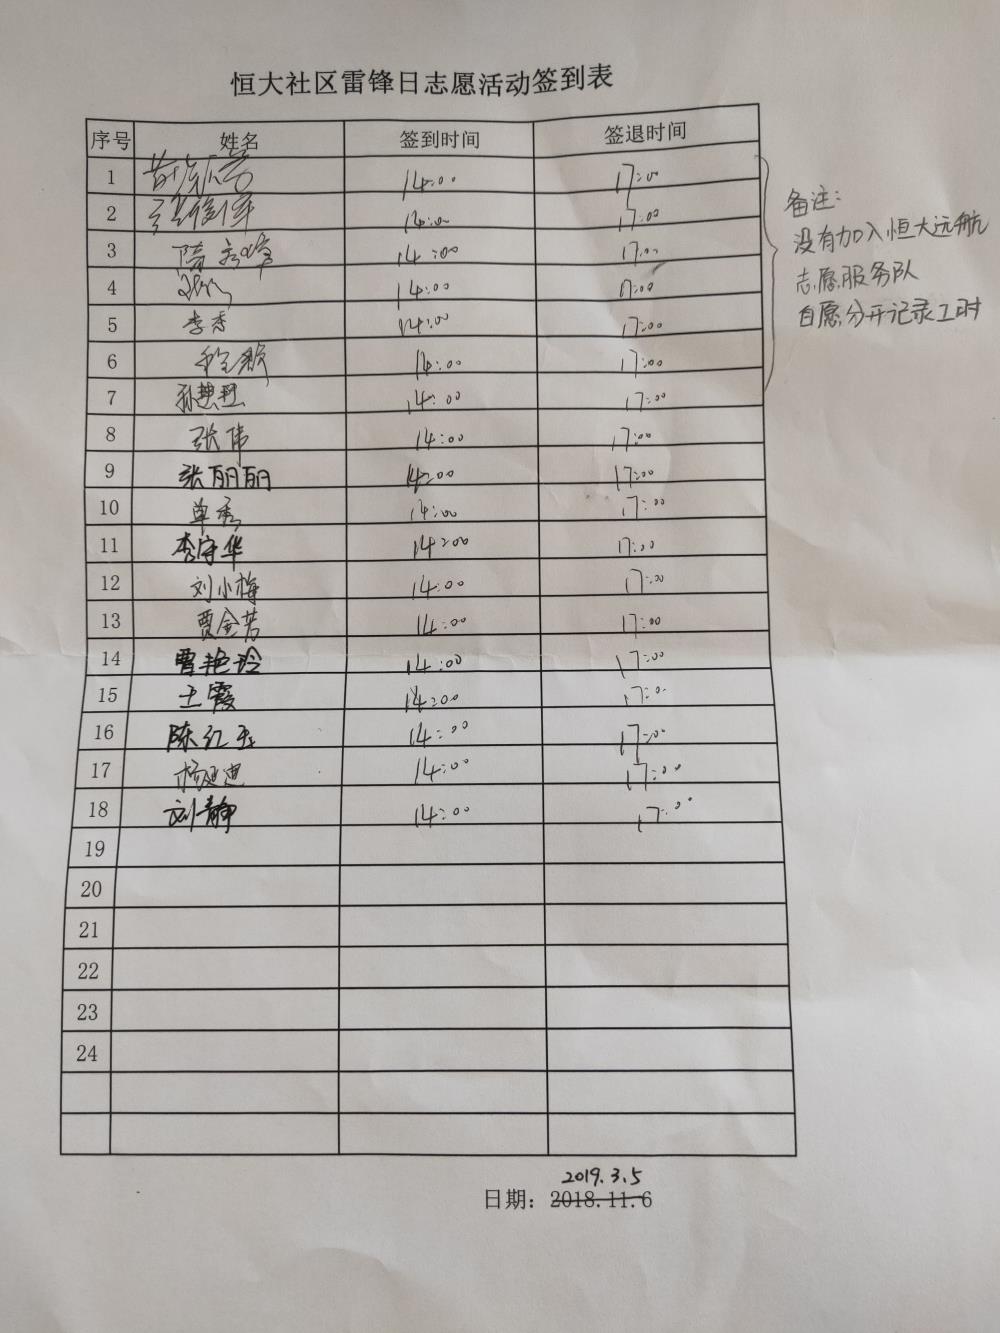 恒大社区雷锋日志愿活动签到表
序号 姓名 签到时间 签退时间
1 14:00 17:00
2 14:00 17:00
3 隋 14:00 17:00
4 14:00 17:00
5 李秀 14:00 17:00
6 14:00 17:00
7 孙慧玨 14:00 17:00
8 张伟 14:00 17:00
9 张丽丽 14:00 17:00
10 单秀 14:00 17:00
11 李守华 14:00 17:00
12 刘小梅 14:00 17:00
13 贾金芳 14:00 17:00
14 曹艳玲 14:00 17:00
15 王霞 14:00 17:00
16 陈红玉 14:00 17:00
17 杨延迪 14:00 17:00
18 刘静 14:00 17:00
19
20
21
22
23
24
备注:
没有加入恒大远航
志愿服务队
自愿分开记录工时
2019.3.5
日期: 2018.11.6